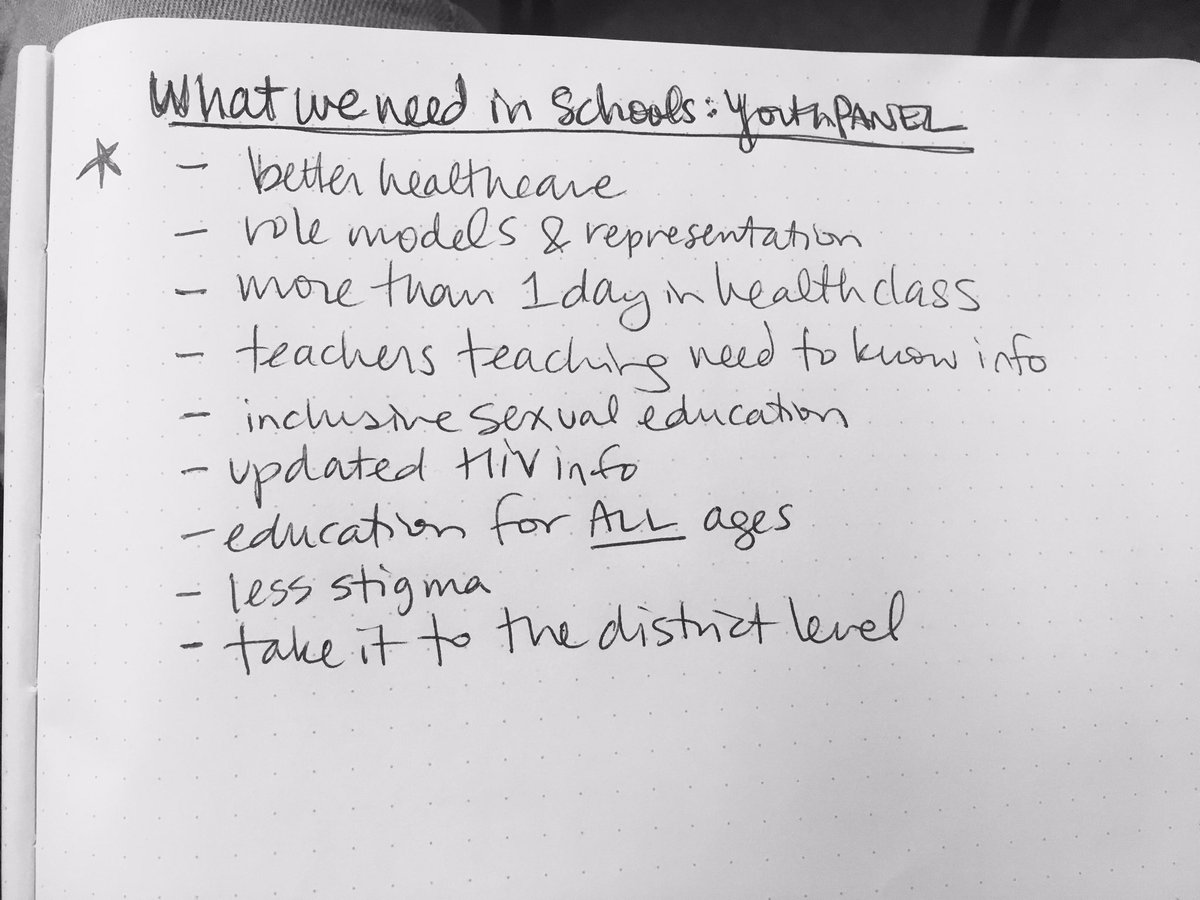 What we need in Schools: Youth PANEL
- better healthcare
- role models & representation
- more than 1 day in health class
- teachers teaching need to know info
- inclusive sexual education
- updated HIV info
- education for ALL ages
- less stigma
- take it to the district level